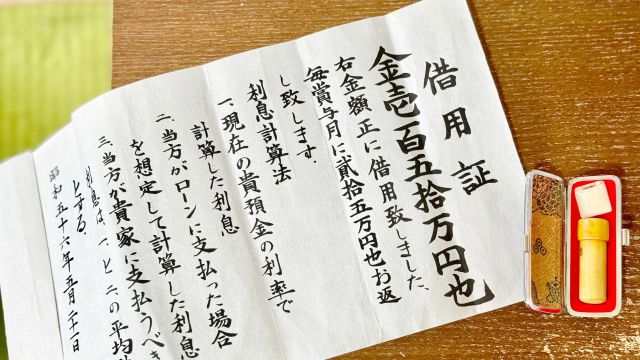 借用証
金壱百五拾万円也
右金額正に借用致しました、
毎賞与月に貮拾五万円也お返
し致します.
利息計算法
一、現在の貴預金の利率で
計算した利息
二、当方がローンに支払った場合
を想定して計算した利息
三、当方が貴家に支払うべき
利息は、一、と二、の平均
とする、
昭和五十六年五月二十一日